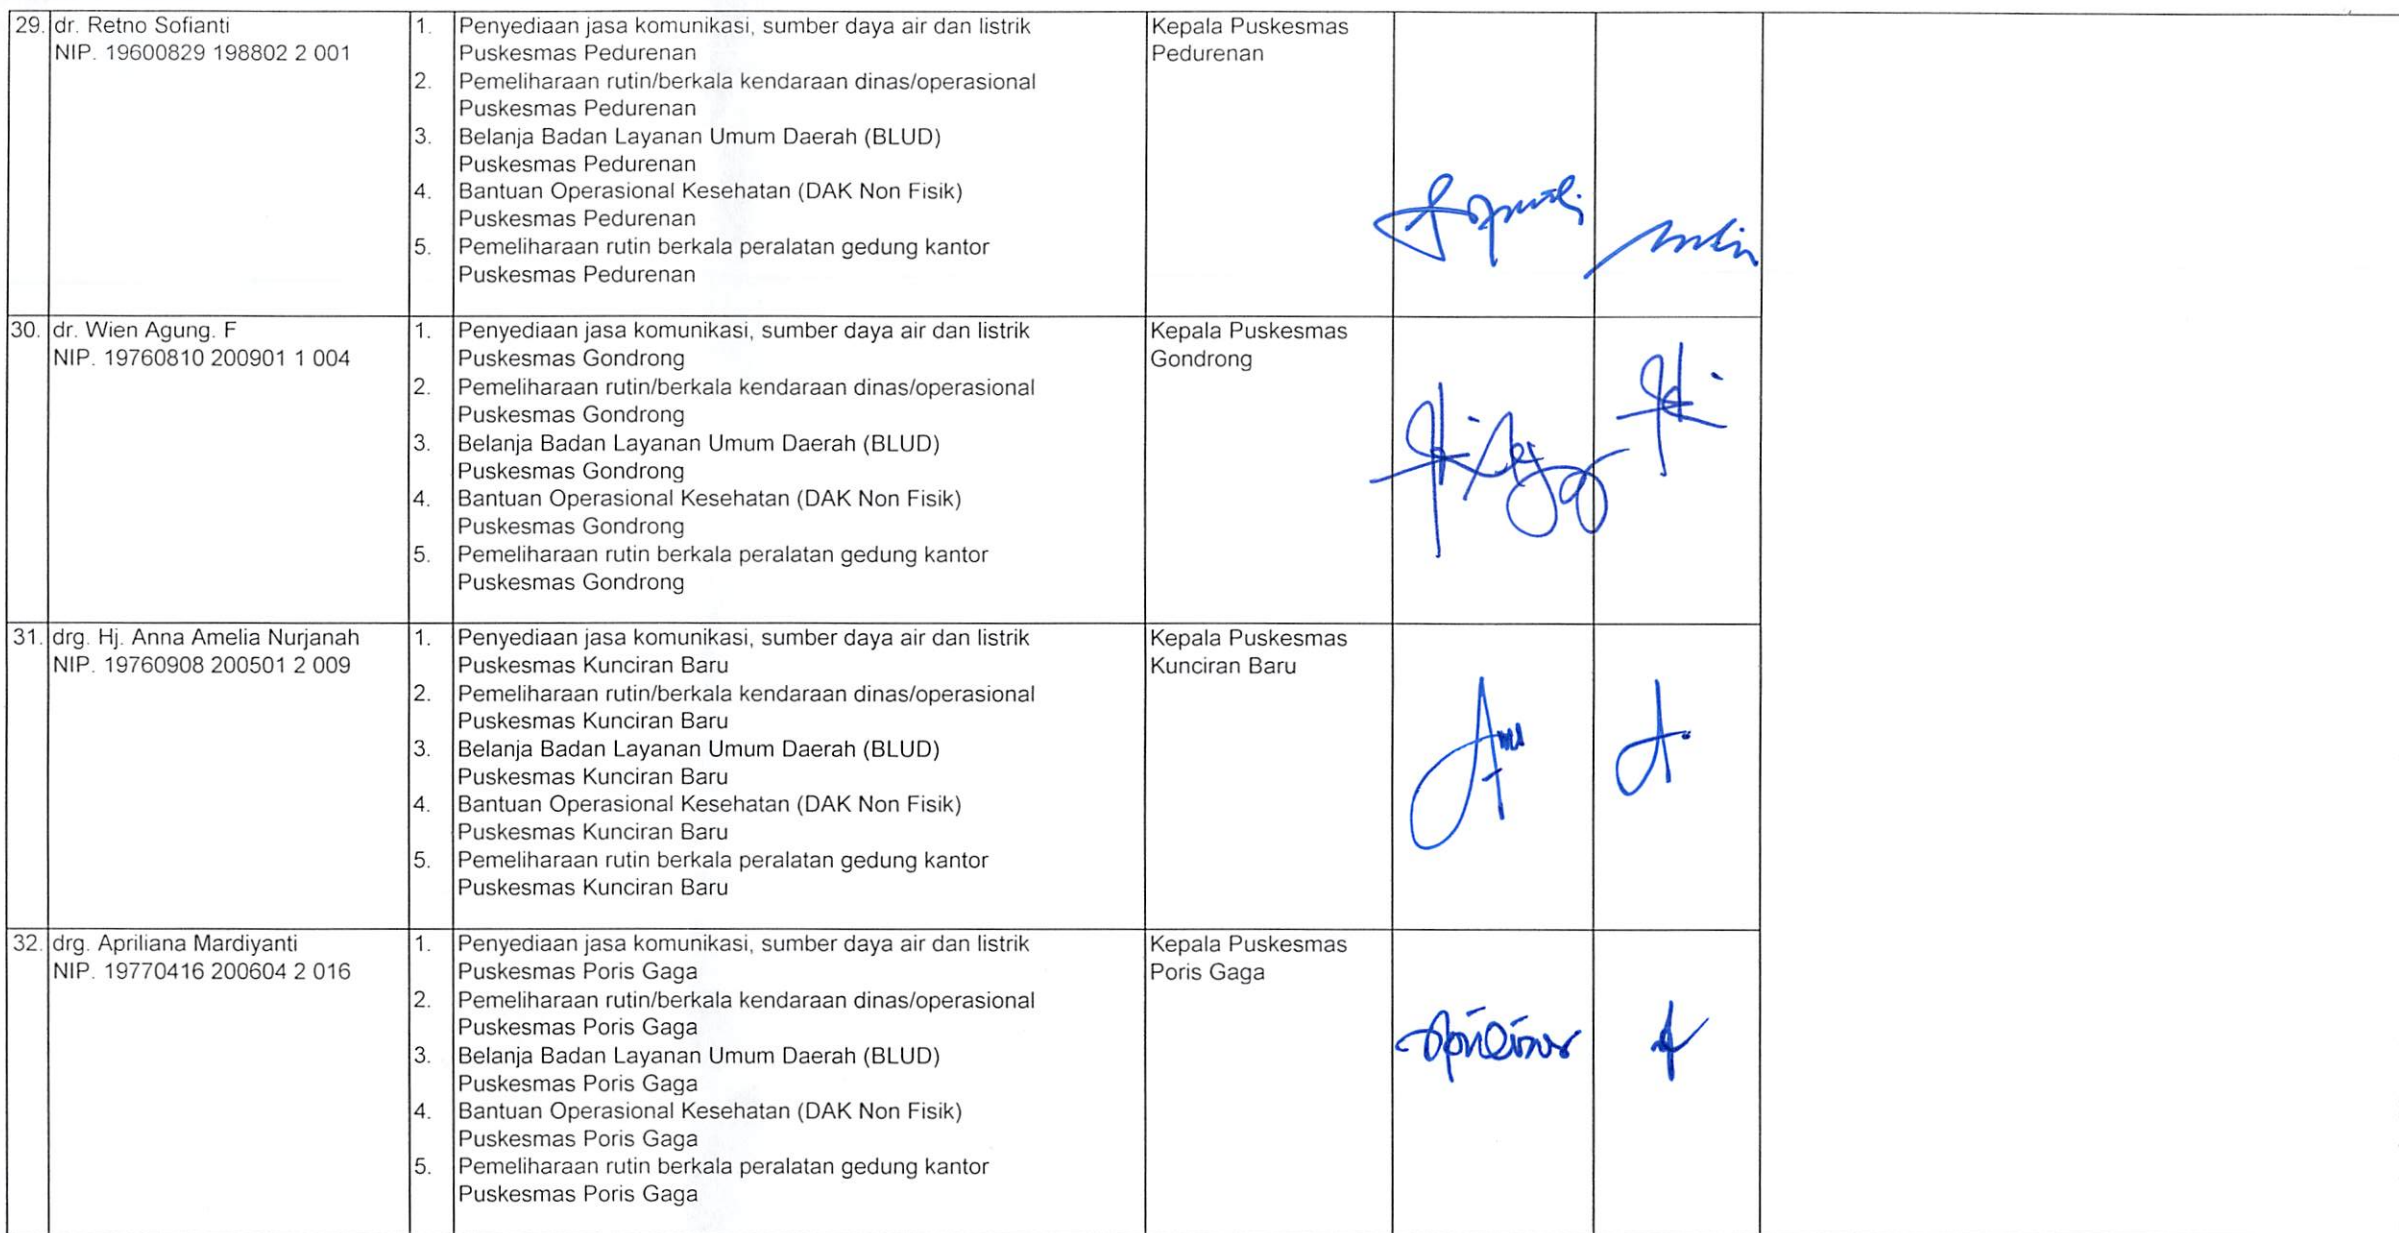 29. dr. Retno Sofianti
NIP. 19600829 198802 2 001
1. Penyediaan jasa komunikasi, sumber daya air dan listrik
Puskesmas Pedurenan
2. Pemeliharaan rutin/berkala kendaraan dinas/operasional
Puskesmas Pedurenan
3. Belanja Badan Layanan Umum Daerah (BLUD)
Puskesmas Pedurenan
4. Bantuan Operasional Kesehatan (DAK Non Fisik)
Puskesmas Pedurenan
5. Pemeliharaan rutin berkala peralatan gedung kantor
Puskesmas Pedurenan
Kepala Puskesmas
Pedurenan
30. dr. Wien Agung. F
NIP. 19760810 200901 1 004
1. Penyediaan jasa komunikasi, sumber daya air dan listrik
Puskesmas Gondrong
2. Pemeliharaan rutin/berkala kendaraan dinas/operasional
Puskesmas Gondrong
3. Belanja Badan Layanan Umum Daerah (BLUD)
Puskesmas Gondrong
4. Bantuan Operasional Kesehatan (DAK Non Fisik)
Puskesmas Gondrong
5. Pemeliharaan rutin berkala peralatan gedung kantor
Puskesmas Gondrong
Kepala Puskesmas
Gondrong
31. drg. Hj. Anna Amelia Nurjanah
NIP. 19760908 200501 2 009
1. Penyediaan jasa komunikasi, sumber daya air dan listrik
Puskesmas Kunciran Baru
2. Pemeliharaan rutin/berkala kendaraan dinas/operasional
Puskesmas Kunciran Baru
3. Belanja Badan Layanan Umum Daerah (BLUD)
Puskesmas Kunciran Baru
4. Bantuan Operasional Kesehatan (DAK Non Fisik)
Puskesmas Kunciran Baru
5. Pemeliharaan rutin berkala peralatan gedung kantor
Puskesmas Kunciran Baru
Kepala Puskesmas
Kunciran Baru
32. drg. Apriliana Mardiyanti
NIP. 19770416 200604 2 016
1. Penyediaan jasa komunikasi, sumber daya air dan listrik
Puskesmas Poris Gaga
2. Pemeliharaan rutin/berkala kendaraan dinas/operasional
Puskesmas Poris Gaga
3. Belanja Badan Layanan Umum Daerah (BLUD)
Puskesmas Poris Gaga
4. Bantuan Operasional Kesehatan (DAK Non Fisik)
Puskesmas Poris Gaga
5. Pemeliharaan rutin berkala peralatan gedung kantor
Puskesmas Poris Gaga
Kepala Puskesmas
Poris Gaga